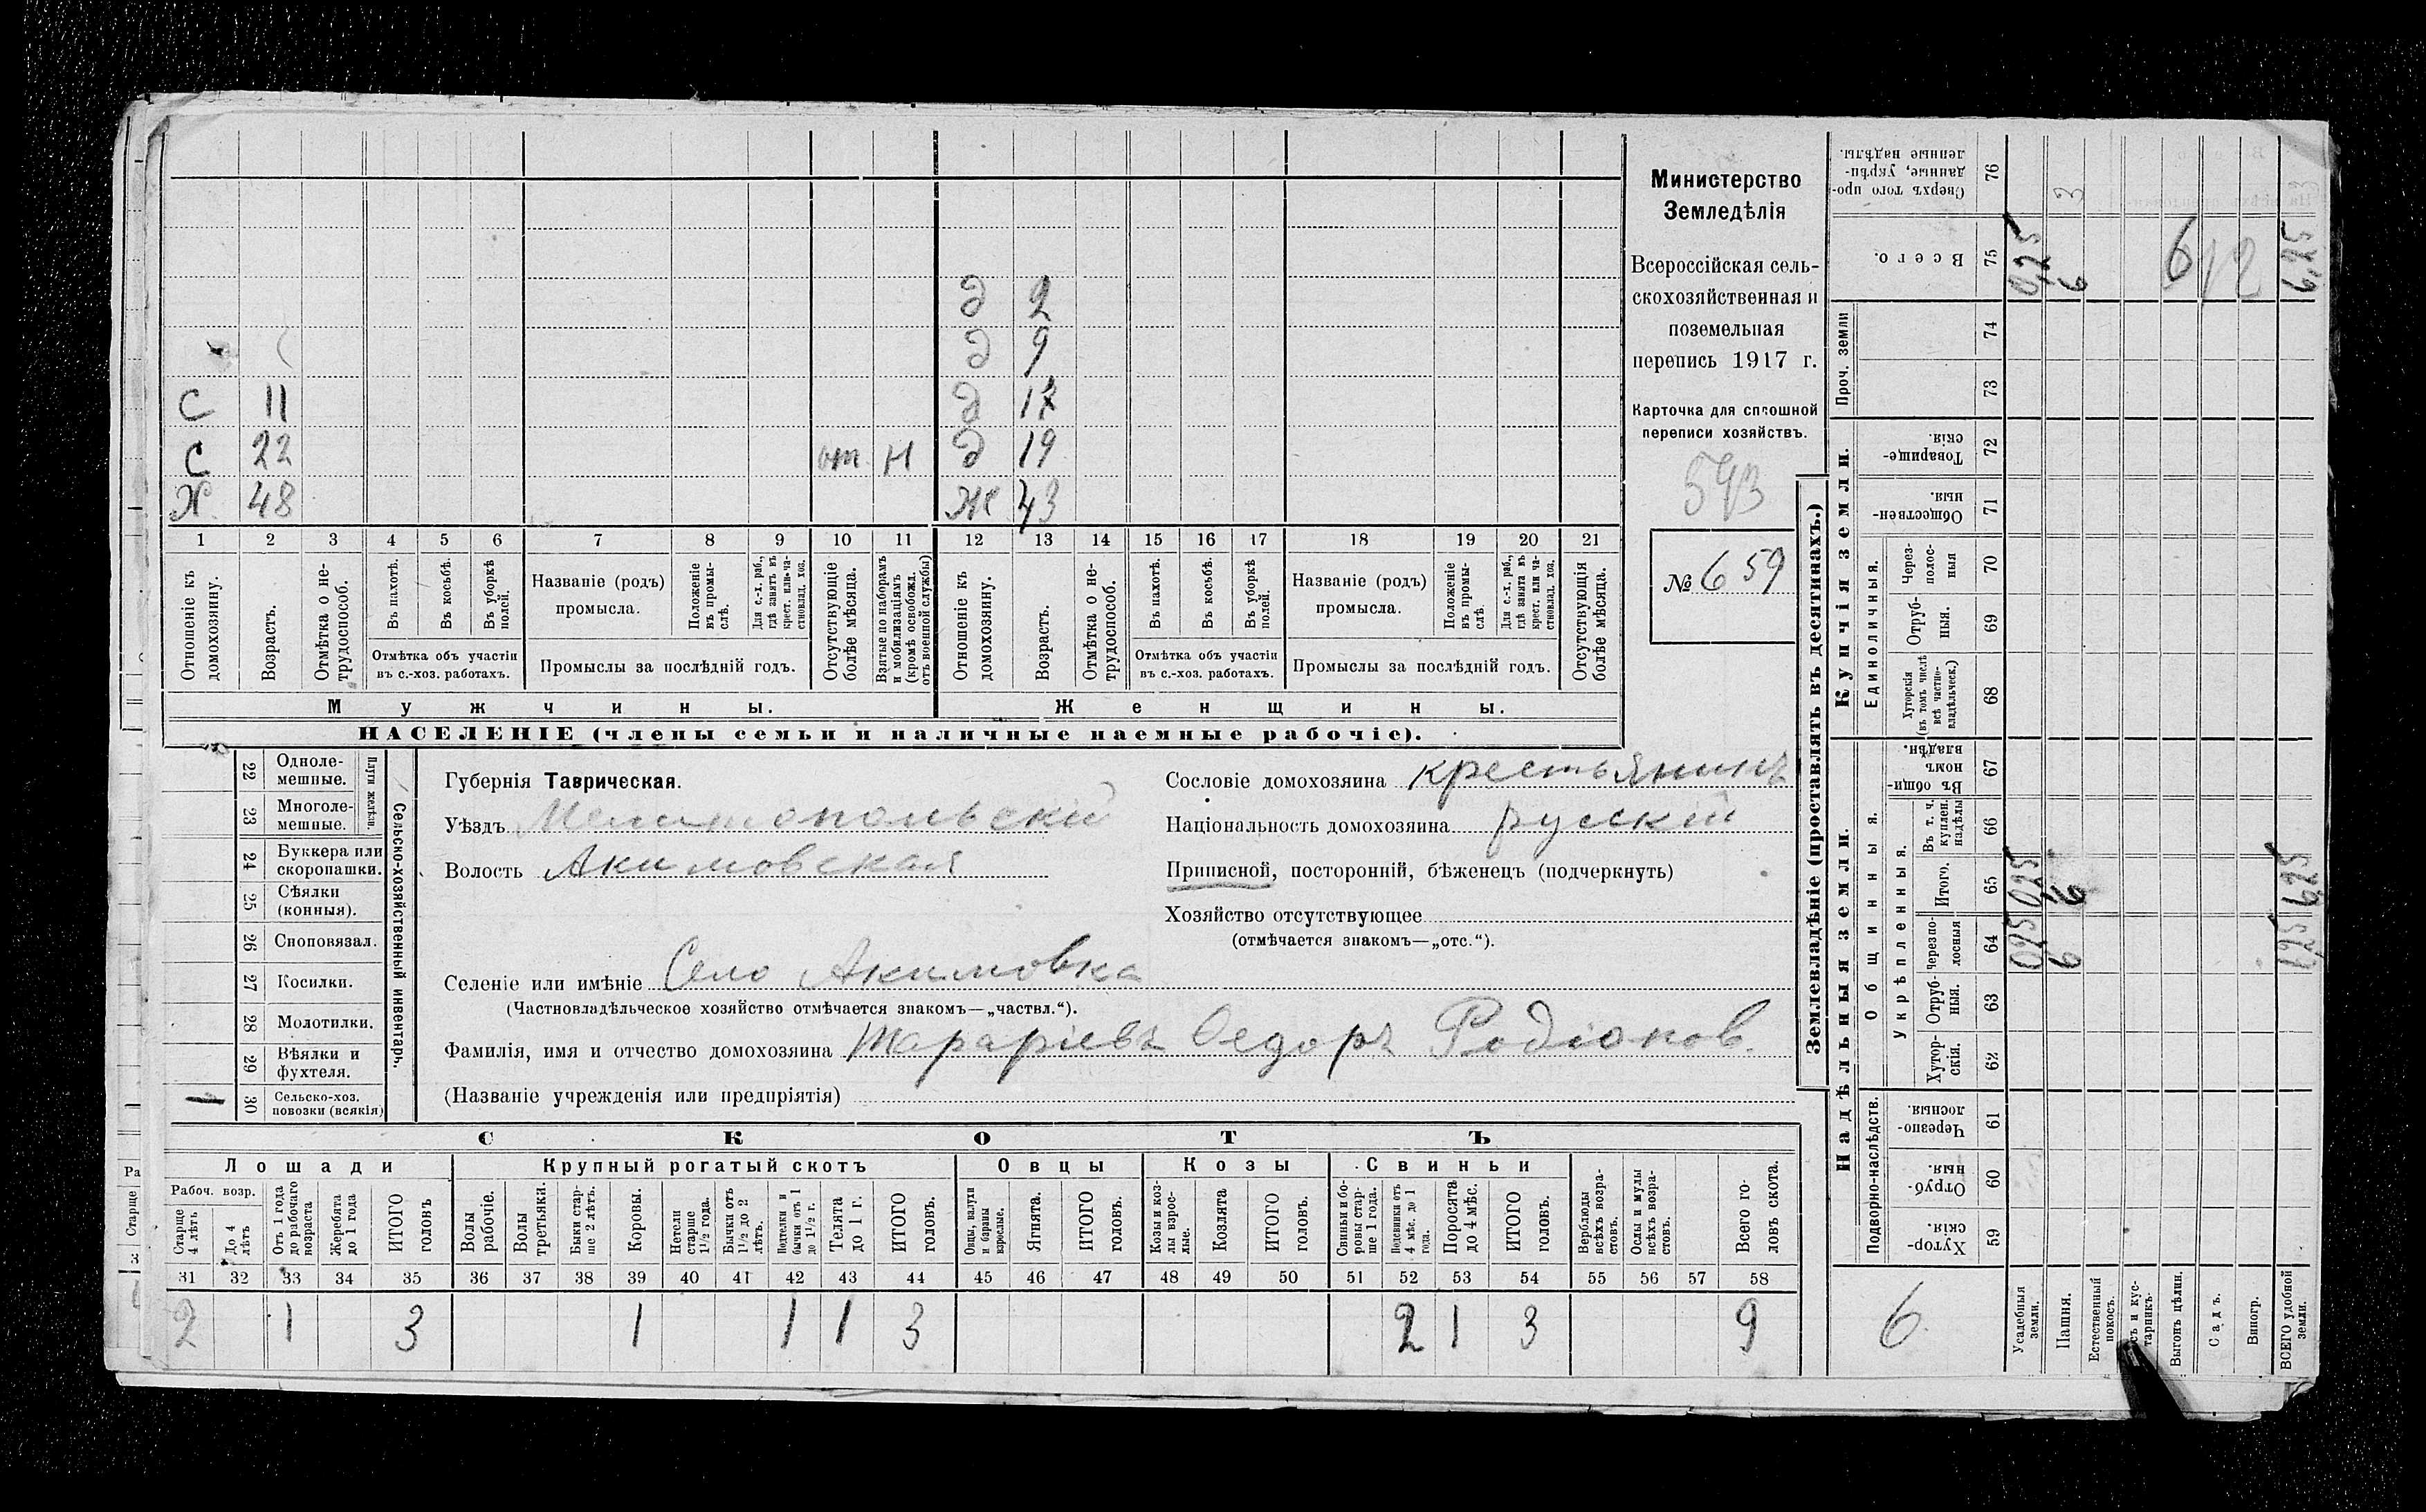 Министерство
Земледѣлія
Всероссійская сель-
скохозяйственная и
поземельная
перепись 1917 г.
Карточка для сплошной
переписи хозяйствъ.
593
№ 659
д 2
д 9
С 11 д
С 22 от Н д 19
Х 48 Ж 43
1 2 3 4 5 6 7 8 9 10 11 12 13 14 15 16 17 18 19 20 21
Отношеніе къ домохозяину.
Возрастъ.
Отмѣтка о не-трудоспособ.
Въ пахотѣ.
Въ косьбѣ.
Въ уборкѣ полей.
Отмѣтка объ участіи въ с.-хоз. работахъ.
Названіе (родъ) промысла.
Положеніе въ промы-слѣ.
Для с.-х. раб., гдѣ занятъ въ крест. или ча-стновлад. хоз.
Промыслы за послѣдній годъ.
Отсутствующіе болѣе мѣсяца.
Взятые по наборамъ и мобилизаціямъ (кромѣ освобожд. отъ военной службы)
Отношеніе къ домохозяину.
Возрастъ.
Отмѣтка о не-трудоспособ.
Въ пахотѣ.
Въ косьбѣ.
Въ уборкѣ полей.
Отмѣтка объ участіи въ с.-хоз. работахъ.
Названіе (родъ) промысла.
Положеніе въ промы-слѣ.
Для с.-х. раб., гдѣ занята въ крест. или ча-стновлад. хоз.
Промыслы за послѣдній годъ.
Отсутствующія болѣе мѣсяца.
Мужчины. Женщины.
НАСЕЛЕНІЕ (члены семьи и наличные наемные рабочіе).
Сельско-хозяйственный инвентарь.
Плуги желѣзн.
22 Одноле-мешные.
23 Многоле-мешные.
24 Буккера или скоропашки.
25 Сѣялки (конныя).
26 Сноповязал.
27 Косилки.
28 Молотилки.
29 Вѣялки и фухтеля.
1 30 Сельско-хоз. повозки (всякія)
Губернія Таврическая.
Уѣздъ Мелитопольскій
Волость Акимовская
Сословіе домохозяина крестьянинъ
Національность домохозяина русскій
Приписной, посторонній, бѣженецъ (подчеркнуть)
Хозяйство отсутствующее
(отмѣчается знакомъ—„отс.“).
Селеніе или имѣніе Село Акимовка
(Частновладѣльческое хозяйство отмѣчается знакомъ—„частвл.“).
Фамилія, имя и отчество домохозяина Тараріевъ Федоръ Родіонов.
(Названіе учрежденія или предпріятія)
СКОТЪ
Лошади Крупный рогатый скотъ Овцы Козы Свиньи
Рабоч. возр.
Старще 4 лѣтъ
До 4 лѣтъ
Отъ 1 года до рабочаго возраста
Жеребята до 1 года
ИТОГО головъ
Волы рабочіе.
Волы третьяки.
Быки стар-ше 2 лѣтъ.
Коровы.
Нетели старше 1½ года.
Бычки отъ 1½ до 2 лѣтъ.
Подтелки и бычки отъ 1 до 1½ г.
Телята до 1 г.
ИТОГО головъ.
Овцы, валухи и бараны взрослые.
Ягнята.
ИТОГО головъ.
Козы и коз-лы взрос-лые.
Козлята
ИТОГО головъ.
Свиньи и бо-ровы стар-ше 1 года.
Подсвинки отъ 4 мѣс. до 1 года.
Поросята до 4 мѣс.
ИТОГО головъ.
Верблюды всѣхъ возра-стовъ.
Ослы и мулы всѣхъ возра-стовъ.
Всего го-ловъ скота.
31 32 33 34 35 36 37 38 39 40 41 42 43 44 45 46 47 48 49 50 51 52 53 54 55 56 57 58
2 1 3 1 1 1 3 2 1 3 9
Землевладѣніе (проставлять въ десятинахъ.)
Надѣльныя земли. Купчія земли. Проч. земли
Подворно-наслѣдств. Общинныя. Укрѣпленныя. Единоличныя.
59 Хутор-скія.
60 Отруб-ныя.
61 Черезпо-лосныя.
62 Хутор-скія.
63 Отруб-ныя.
64 Черезпо-лосныя 0,25 6
65 Итого. 0,25 6 6,25
66 Въ т. ч. куплен. надѣлы
67 Въ общи-номъ владѣн.
68 Хуторскія (въ томъ числѣ всѣ частно-владѣльческ.)
69 Отруб-ныя.
70 Через-полос-ныя
71 Обществен-ныя.
72 Товарище-скія.
73
74
75 Всего. 0,25 6 612 6,25
76 Сверхъ того про-данные, укрѣп-ленные надѣлы. 3
6
Усадебныя земли.
Пашня.
Естественный покосъ.
и кус-тарникъ.
Выгонъ цѣлин.
Садъ.
Виногр.
ВСЕГО удобной земли.